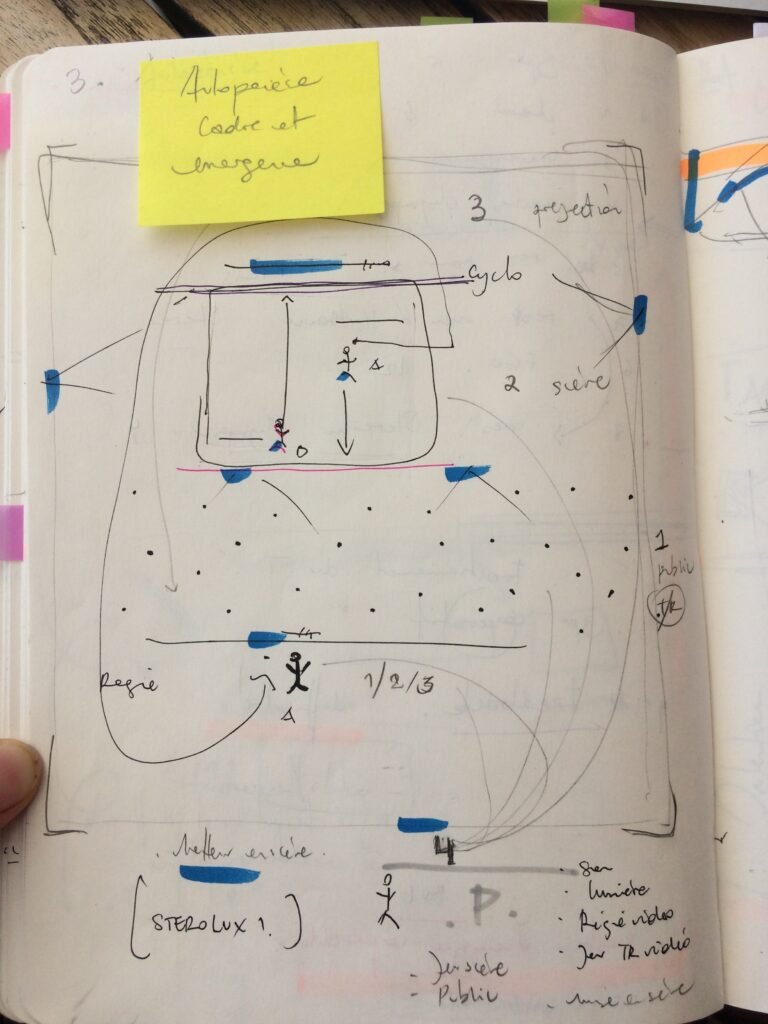 3.
cadre et
3 projection
cyclo
2 scène
A
O
1
public
TR
Regie
1/2/3
A
4
. Metteur en scène.
[STEROLUX 1.]
.P.
. Son
. Lumière
. Régie video
. Jeu TR vidéo
- Jeu scène
- Public
. mise en scène